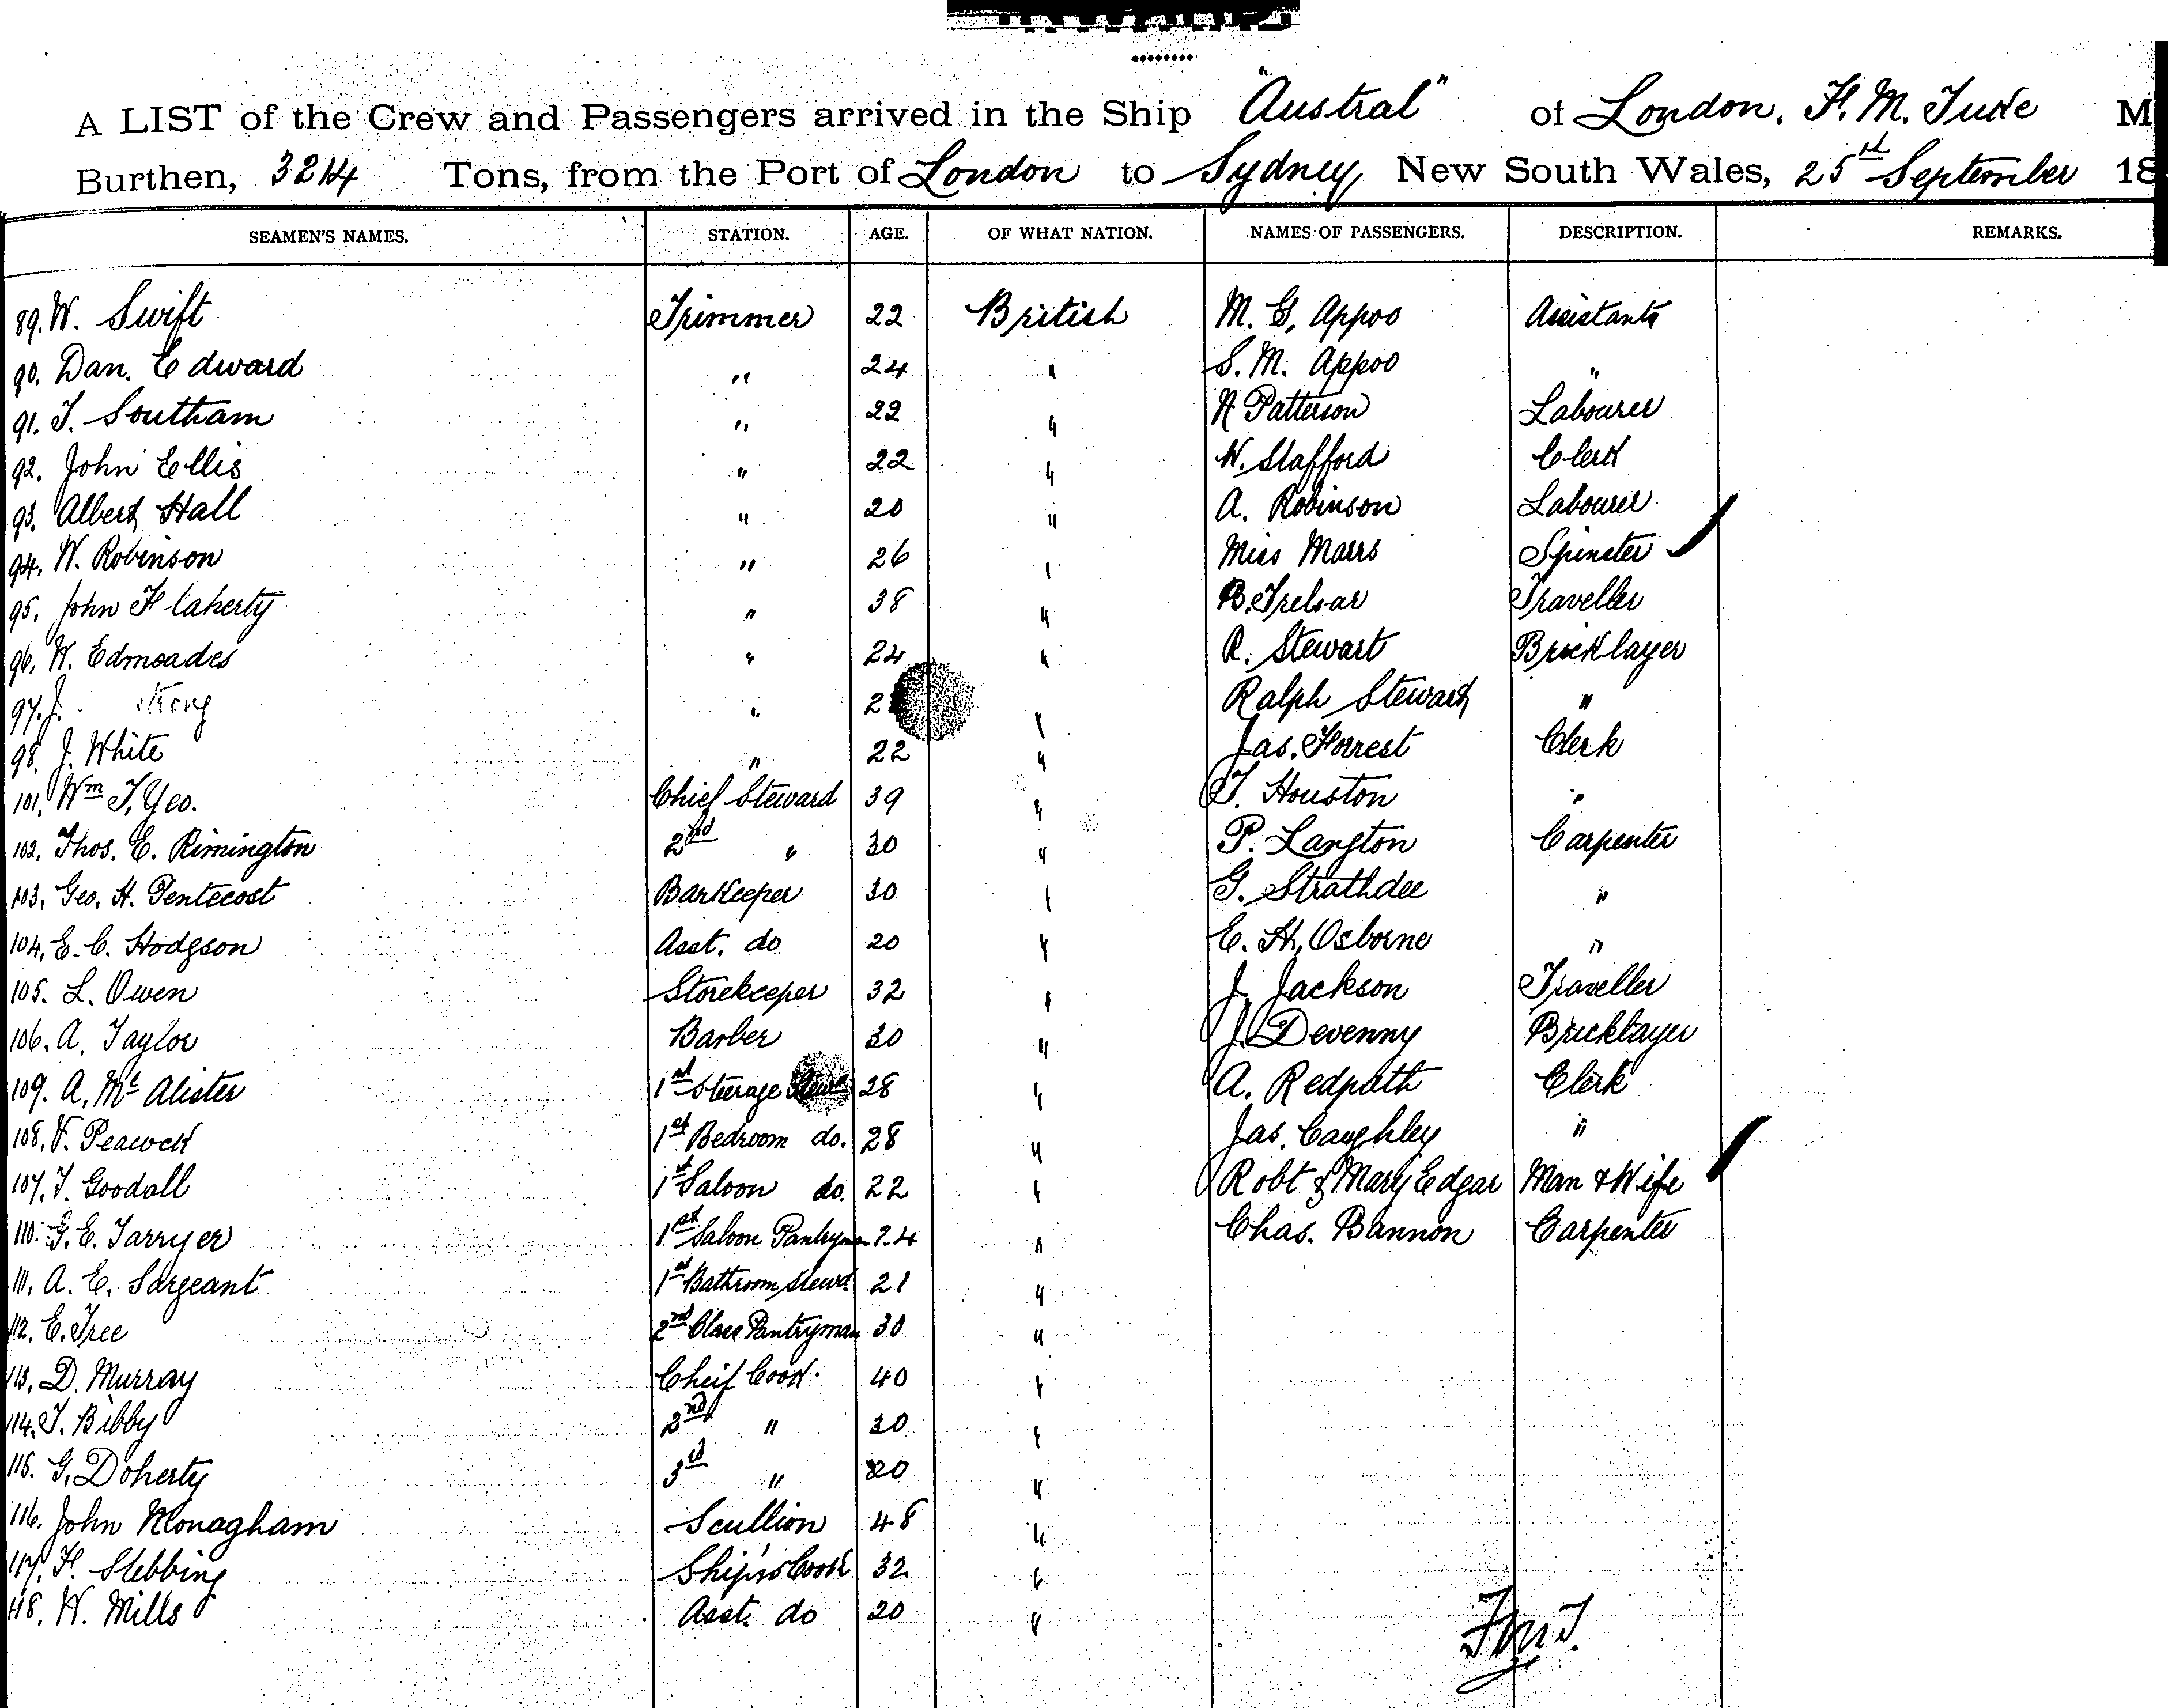 A LIST of the Crew and Passengers arrived in the Ship "Austral" of London, F. M. Tuke M
Burthen, 3214 Tons, from the Port of London to Sydney, New South Wales, 25th September 18
SEAMEN'S NAMES. STATION. AGE. OF WHAT NATION. NAMES OF PASSENGERS. DESCRIPTION. REMARKS.
89. W. Swift Trimmer 22 British M. G. Appoo Assistants
90. Dan. Edward " 24 " S. M. Appoo "
91. T. Southam " 22 " Patterson Labourer
92. John Ellis " 22 " W. Stafford Clerk
93. Albert Hall " 20 " A. Robinson Labourer
94. W. Robinson " 26 " Miss Marrs Spinster
95. John Flaherty " 38 " B. Treloar Traveller
96. W. Edmoades " 24 " R. Stewart Bricklayer
97. J. " " Ralph Stewart "
98. J. White " 22 " Jas. Forrest Clerk
101. Wm T. Yeo. Chief Steward 39 " T. Houston "
102. Thos. E. Rimington 2nd " 30 " P. Langton Carpenter
103. Geo. H. Pentecost BarKeeper 30 " G. Strathdee "
104. E. C. Hodgson Asst. do 20 " E. H. Osborne "
105. L. Owen Storekeeper 32 " J. Jackson Traveller
106. A. Taylor Barber 30 " J. Devenny Bricklayer
109. A. Mc Alister 1st Steerage 28 " A. Redpath Clerk
108. V. Peacock 1st Bedroom do. 28 " Jas. Caughley "
107. T. Goodall 1st Saloon do. 22 " Robt & Mary Edgar Man & Wife
110. G. E. Tarryer 1st Saloon Pantryman 24 " Chas. Bannon Carpenter
111. A. E. Sargeant 1st Bathroom Stewd. 21 "
112. E. Tree 2nd Class Pantryman 30 "
113. D. Murray Cheif Cook. 40 "
114. T. Bibby 2nd " 30 "
115. G. Doherty 3rd " 20 "
116. John Monagham Scullion 48 "
117. F. Stebbing Ship's Cook 32 "
118. W. Mills Asst. do 20 "